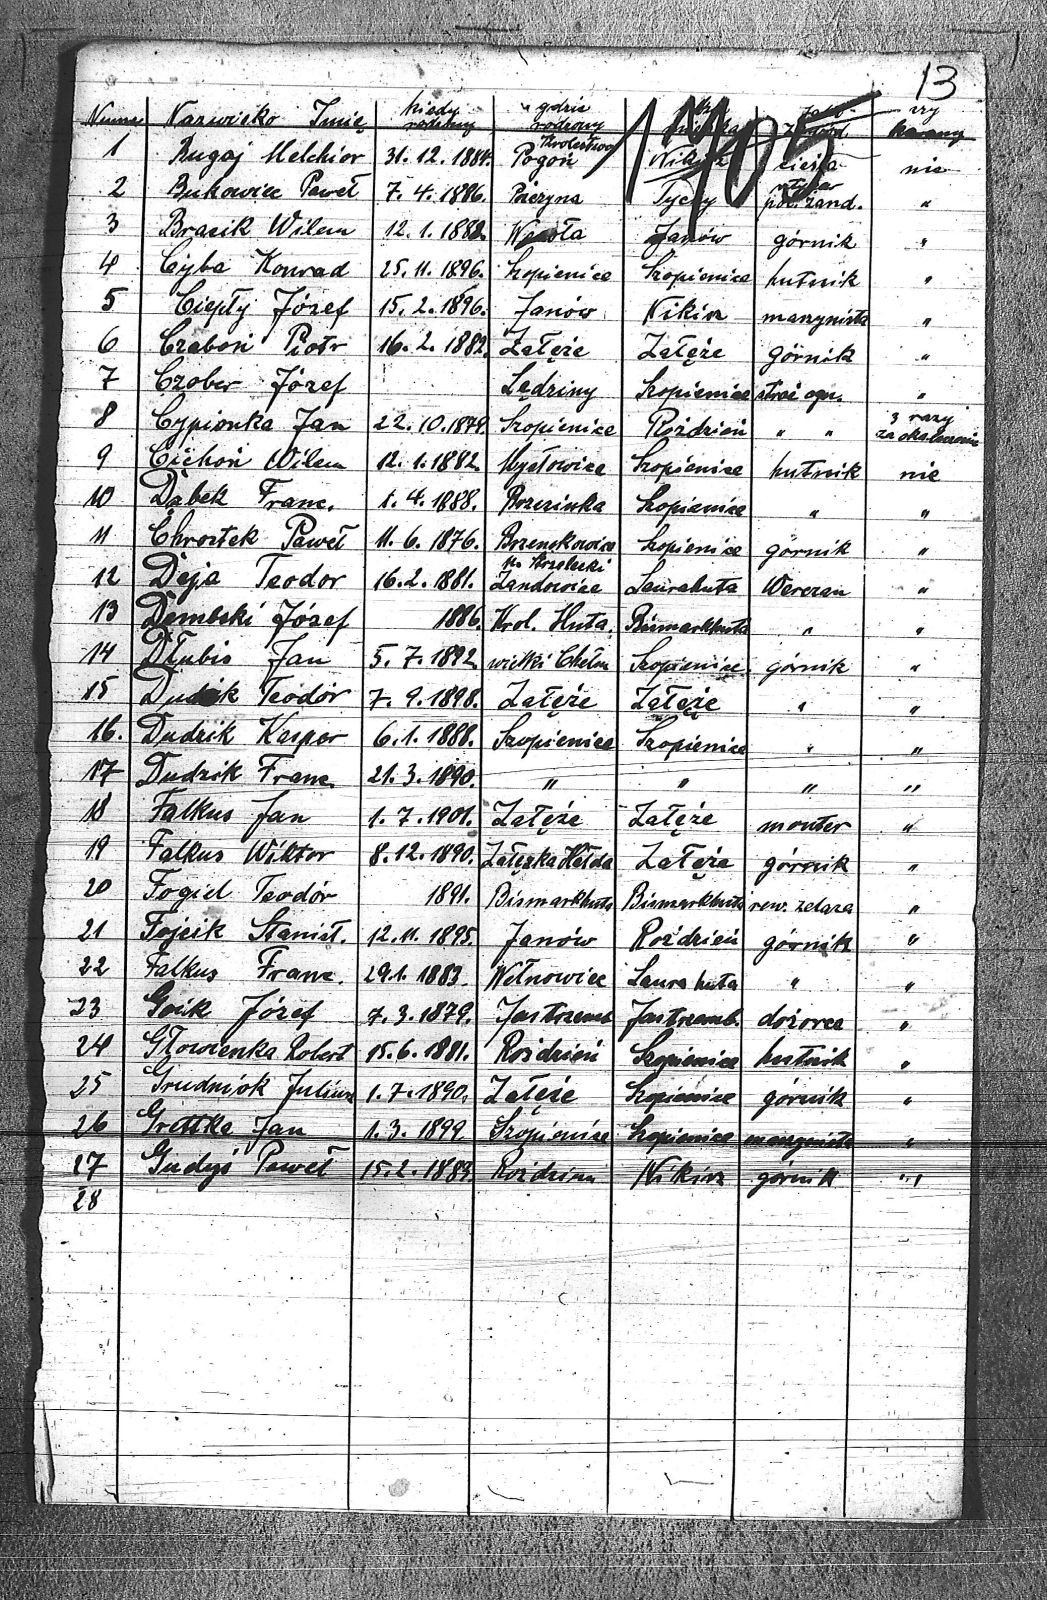 13
1705
Numer Nazwisko Imię kiedy rodzony gdzie rodzony zawód czy karany
1 Bugaj Melchior 31. 12. 1884. Pogoń Królestwo Nikisz cieśla nie
2 Bukowiec Paweł 7. 4. 1886. Tychy poł. żand. "
3 Brasik Wilem 12. 1. 1882. Wesoła Janów górnik "
4 Cyba Konrad 25. 11. 1896. Szopienice Szopienice hutnik "
5 Ciepły Józef 15. 2. 1896. Janów Nikisz maszynista "
6 Czeboń Piotr 16. 2. 1882. Załęże Załęże górnik "
7 Czober Józef Lędziny Szopienice straż ogn. "
8 Cypionka Jan 22. 10. 1879. Szopienice Roździeń " " 3 razy
9 Cichoń Wilem 12. 1. 1882. Mysłowice Szopienice hutnik nie
10 Dąbek Franc. 1. 4. 1888. Brzezinka Szopienice " "
11 Chrostek Paweł 11. 6. 1876. Brzenskowice Szopienice górnik "
12 Deja Teodor 16. 2. 1881. Żandowice p. Strzelecki Laurahuta "
13 Dembski Józef 1886. Krol. Huta. Bismarkhuta " "
14 Dłubis Jan 5. 7. 1892. wielki Chełm Szopienice górnik "
15 Dudek Teodór 7. 9. 1898. Załęże Załęże " "
16. Dudzik Kasper 6. 1. 1888. Szopienice Szopienice " "
17 Dudzik Franc. 21. 3. 1890. " " " "
18 Falkus Jan 1. 7. 1901. Załęże Załęże monter "
19 Falkus Wiktor 8. 12. 1890. Załęska Hałda Załęże górnik "
20 Fogiel Teodór 1891. Bismarkhuta Bismarkhuta żelaza "
21 Fojcik Stanisł. 12. 11. 1895. Janów Roździeń górnik "
22 Falkus Franc. 29. 1. 1883. Wełnowiec Laura huta " "
23 Goik Józef 7. 3. 1879. Jastrzemb Jastrzemb. dozorca "
24 Głowienka Robert 15. 6. 1881. Roździeń Szopienice hutnik "
25 Grudniok Juliusz 1. 7. 1890. Załęże Szopienice górnik "
26 Grottka Jan 1. 3. 1899. Szopienice Szopienice maszynista "
27 Gudyś Paweł 15. 2. 1883. Roździeń Nikisz górnik "
28